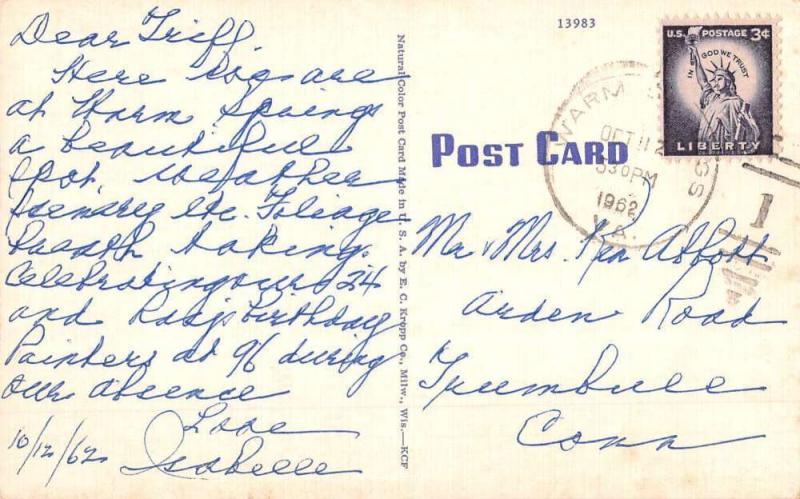 Dear Triff,
Here
are
at Warm Springs
a beautiful
spot, weather
scenery etc. Foliage
breath taking.
Celebrating our 34
and Ray's birthday
Painters at 96 during
our absence
Love
10/12/62 Isabelle
Natural Color Post Card Made in U. S. A. by E. C. Kropp Co., Milw., Wis.—KCF
13983
POST CARD
U.S. POSTAGE 3¢
IN GOD WE TRUST
LIBERTY
WARM
GS
OCT 12
530PM
1962
VA.
1
Mr & Mrs. Ken Abbott
Arden Road
Trumbull
Conn